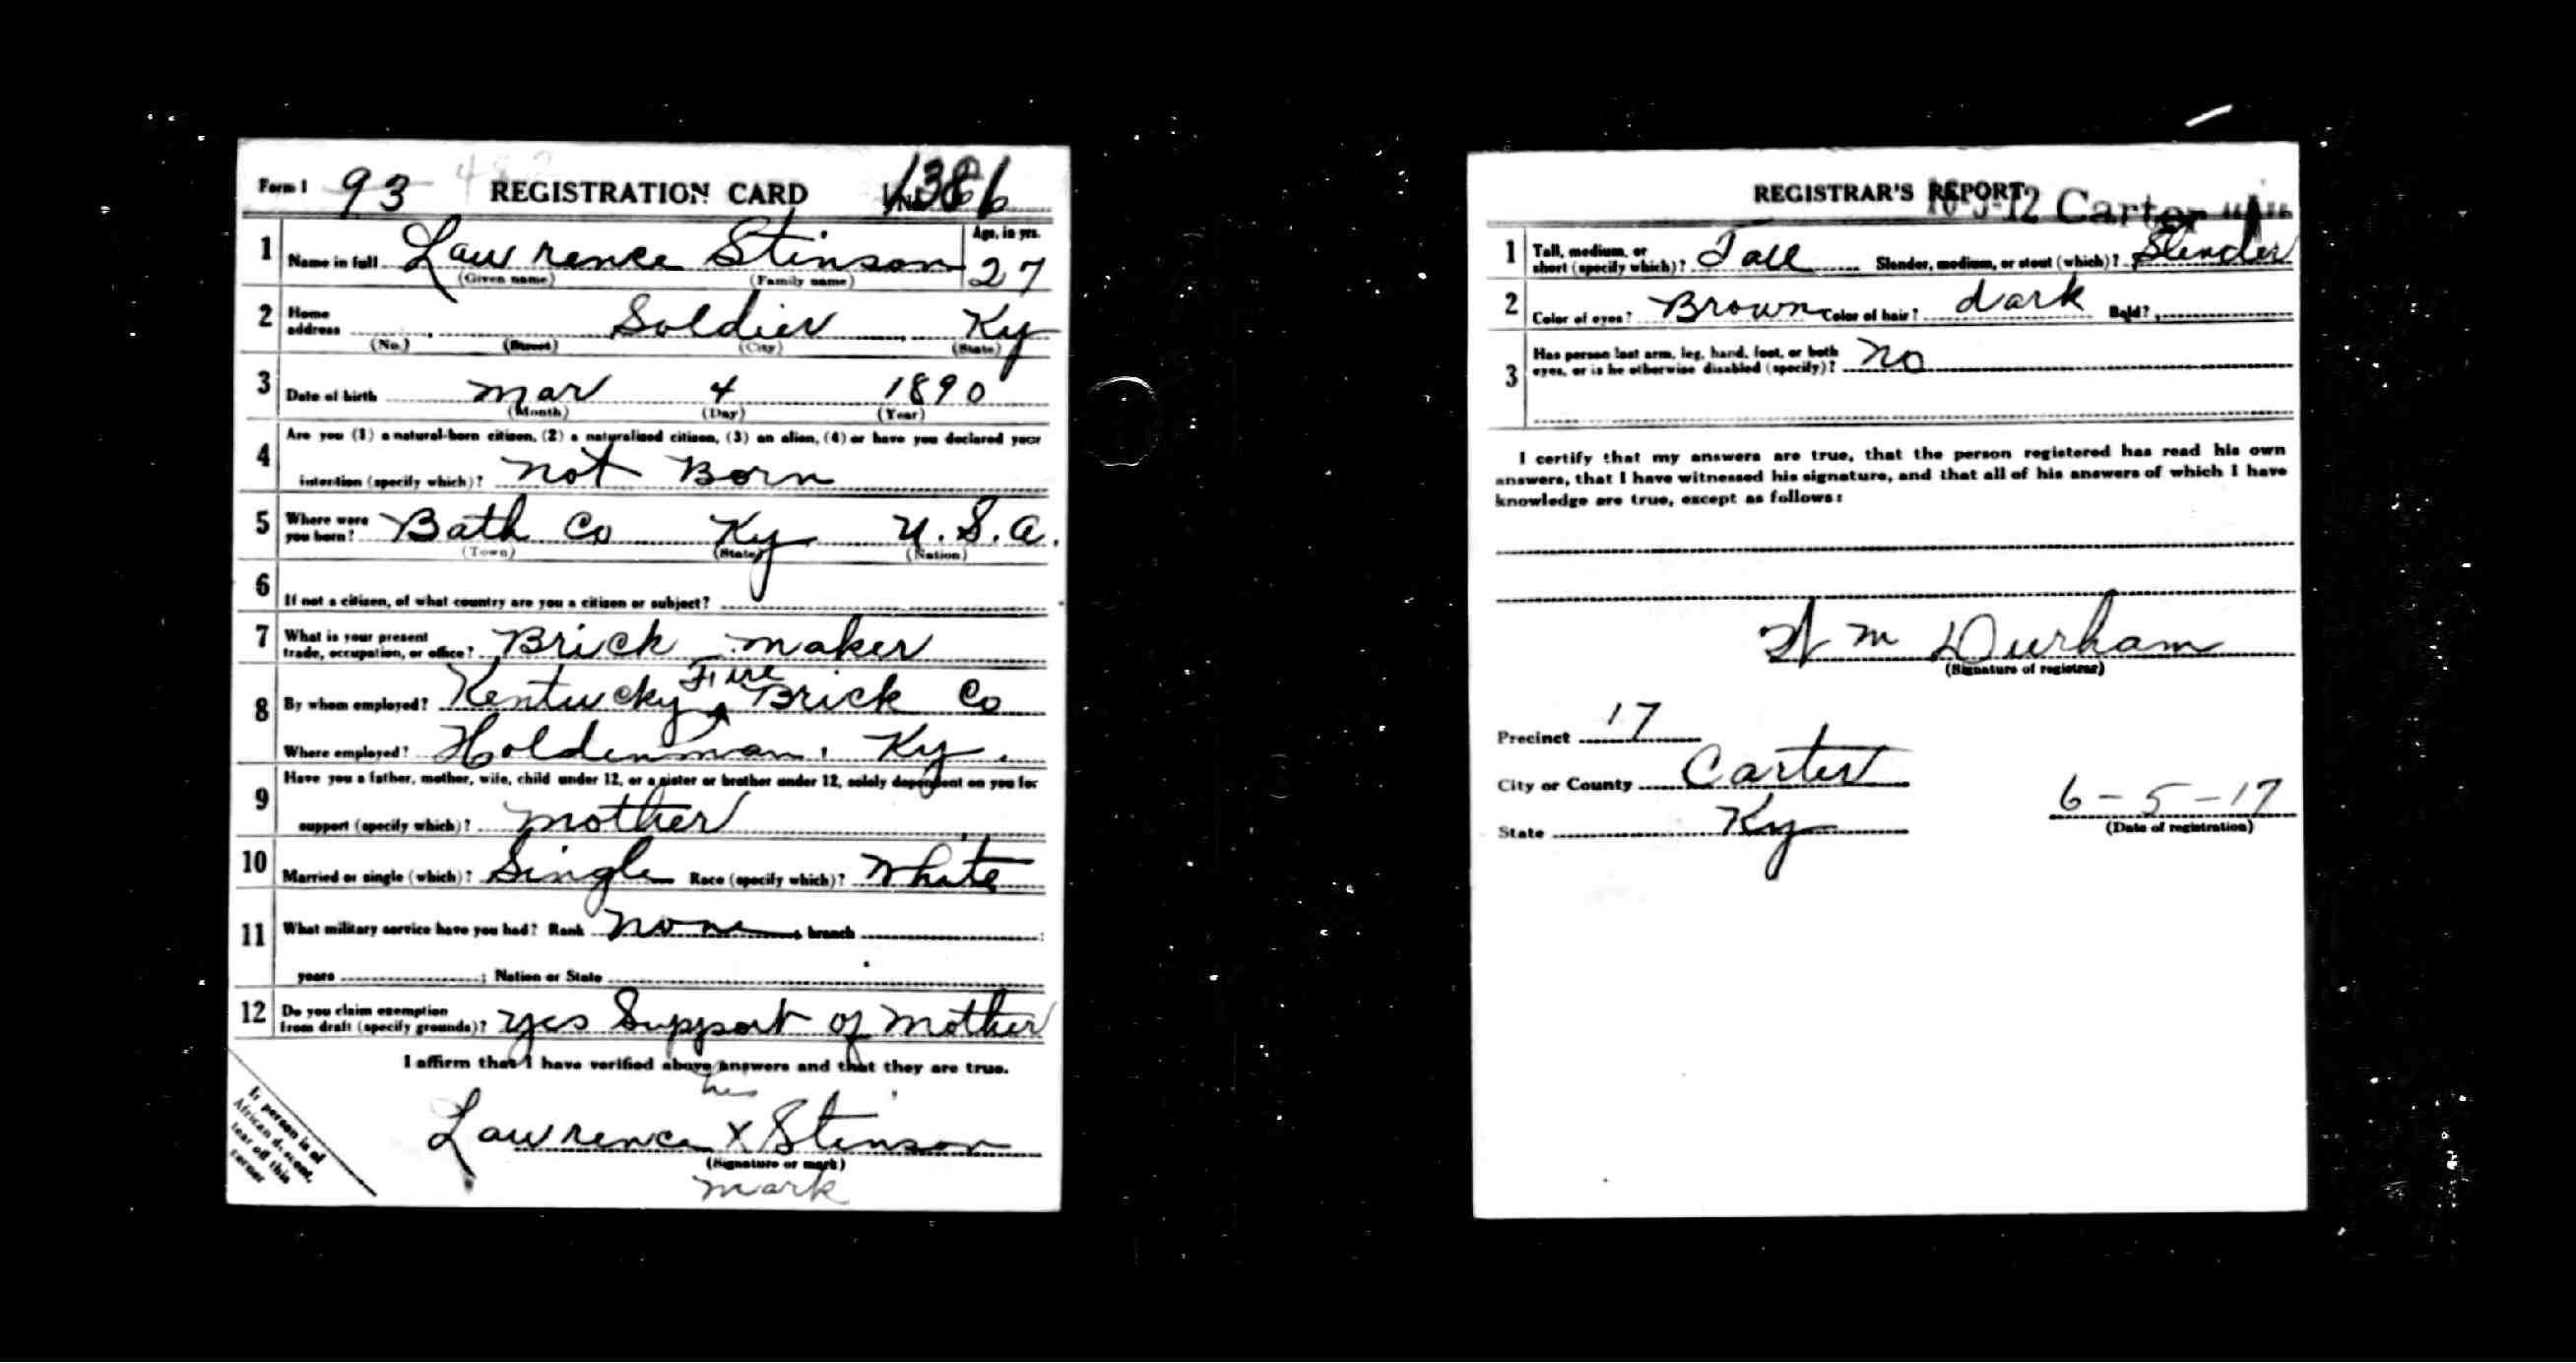 Form 1 93 REGISTRATION CARD No. 1386
1 Name in full Lawrence Stinson Age, in yrs. 27
(Given name) (Family name)
2 Home address Soldier Ky
(No.) (Street) (City) (State)
3 Date of birth Mar 4 1890
(Month) (Day) (Year)
4 Are you (1) a natural-born citizen, (2) a naturalized citizen, (3) an alien, (4) or have you declared your
intention (specify which)? not Born
5 Where were you born? Bath Co Ky U.S.A.
(Town) (State) (Nation)
6 If not a citizen, of what country are you a citizen or subject?
7 What is your present trade, occupation, or office? Brick maker
8 By whom employed? Kentucky Fire Brick Co
Where employed? Holdenman, Ky.
9 Have you a father, mother, wife, child under 12, or a sister or brother under 12, solely dependent on you for
support (specify which)? mother
10 Married or single (which)? Single Race (specify which)? White
11 What military service have you had? Rank none branch
years ; Nation or State
12 Do you claim exemption from draft (specify grounds)? yes Support of Mother
I affirm that I have verified above answers and that they are true.
his
Lawrence X Stinson
(Signature or mark)
mark
If person is of
African descent,
tear off this
corner
REGISTRAR'S REPORT
Carter
1 Tall, medium, or short (specify which)? Tall Slender, medium, or stout (which)? Slender
2 Color of eyes? Brown Color of hair? dark Bald?
3 Has person lost arm, leg, hand, foot, or both
eyes, or is he otherwise disabled (specify)? no
I certify that my answers are true, that the person registered has read his own
answers, that I have witnessed his signature, and that all of his answers of which I have
knowledge are true, except as follows:
W m Durham
(Signature of registrar)
Precinct 17
City or County Carter
State Ky
6-5-17
(Date of registration)